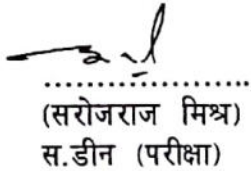 (सरोजराज मिश्र)
स.डीन (परीक्षा)